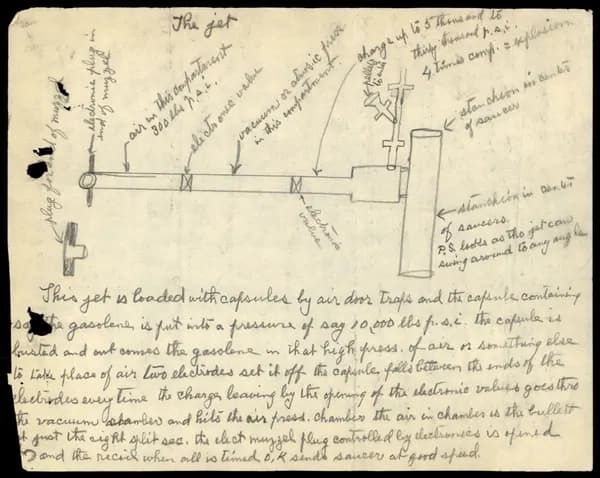 The jet
electronic plug in
end of muzzel
plug for end of muzzel
air in this compartment
300 lbs p.s.i.
electronic valve
vacuum or atmosic pres
in this compartment
charge up to 5 thousand to
thirty thousand p.s.i.
4 times comp. = explosion
pellets
stanchion in center
of saucer
electronic
valve
stanchion in center
of saucers
P.S. looks as tho jet can
swing around to any angle
This jet is loaded with capsules by air door traps and the capsule containing
say the gasolene is put into a pressure of say 10,000 lbs p.s.i. the capsule is
busted and out comes the gasolene in that high press. of air or something else
to take place of air two electrodes set it off the capsule falls between the ends of the
electrodes every time the charge leaving by the opening of the electronic valves goes thro
the vacuum chamber and hits the air press. chamber the air in chamber is the bullett
at just the right split sec. the elect muzzel plug controlled by electronics is opened
and the recoil when all is timed O.K sends saucer at good speed.